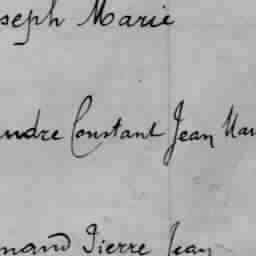 seph Marie
andre Constant Jean Mar
nand Pierre Jean